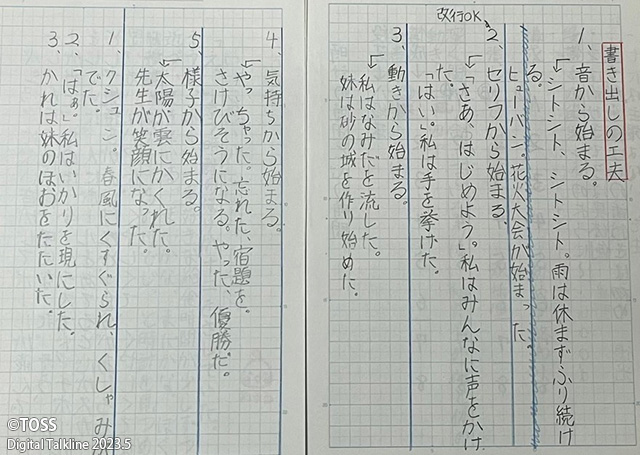 改行OK
書き出しの工夫
1、音から始まる。
↙シトシト、シトシト。雨は休まずふり続け
る。
ヒューバン。花火大会が始まった。
2、セリフから始まる。
↙「さあ、はじめよう」。私はみんなに声をかけ
た。
「はい。」私は手を挙げた。
3、動きから始まる。
↙私はなみだを流した。
妹は砂の城を作り始めた。
4、気持ちから始まる。
↙やっちゃった。忘れた、宿題を。
さけびそうになる。やった、優勝だ。
5、様子から始まる。
↙太陽が雲にかくれた。
先生が笑顔になった。
1、クシューン。春風にくすぐられ、くしゃみが
でた。
2、「はぁ。」私はいかりを現にした。
3、かれは妹のほおをたたいた。
©TOSS
Digital Talkline 2023.5